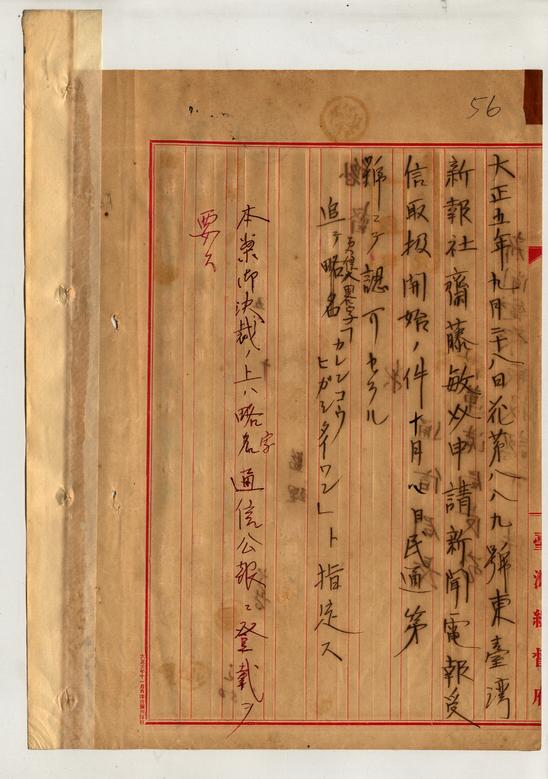 56
大正五年九月二十八日花第八八九號東臺灣
新報社齋藤敏次申請新聞電報受
信取扱開始ノ件十月 日民通第
號ニテ認可セラル
追テ略名「カレンコウ
ヒガシタイワン」ト指定ス
本案御決裁ノ上ハ略名通信公報ニ登載ヲ
字
要ス
臺灣總督府